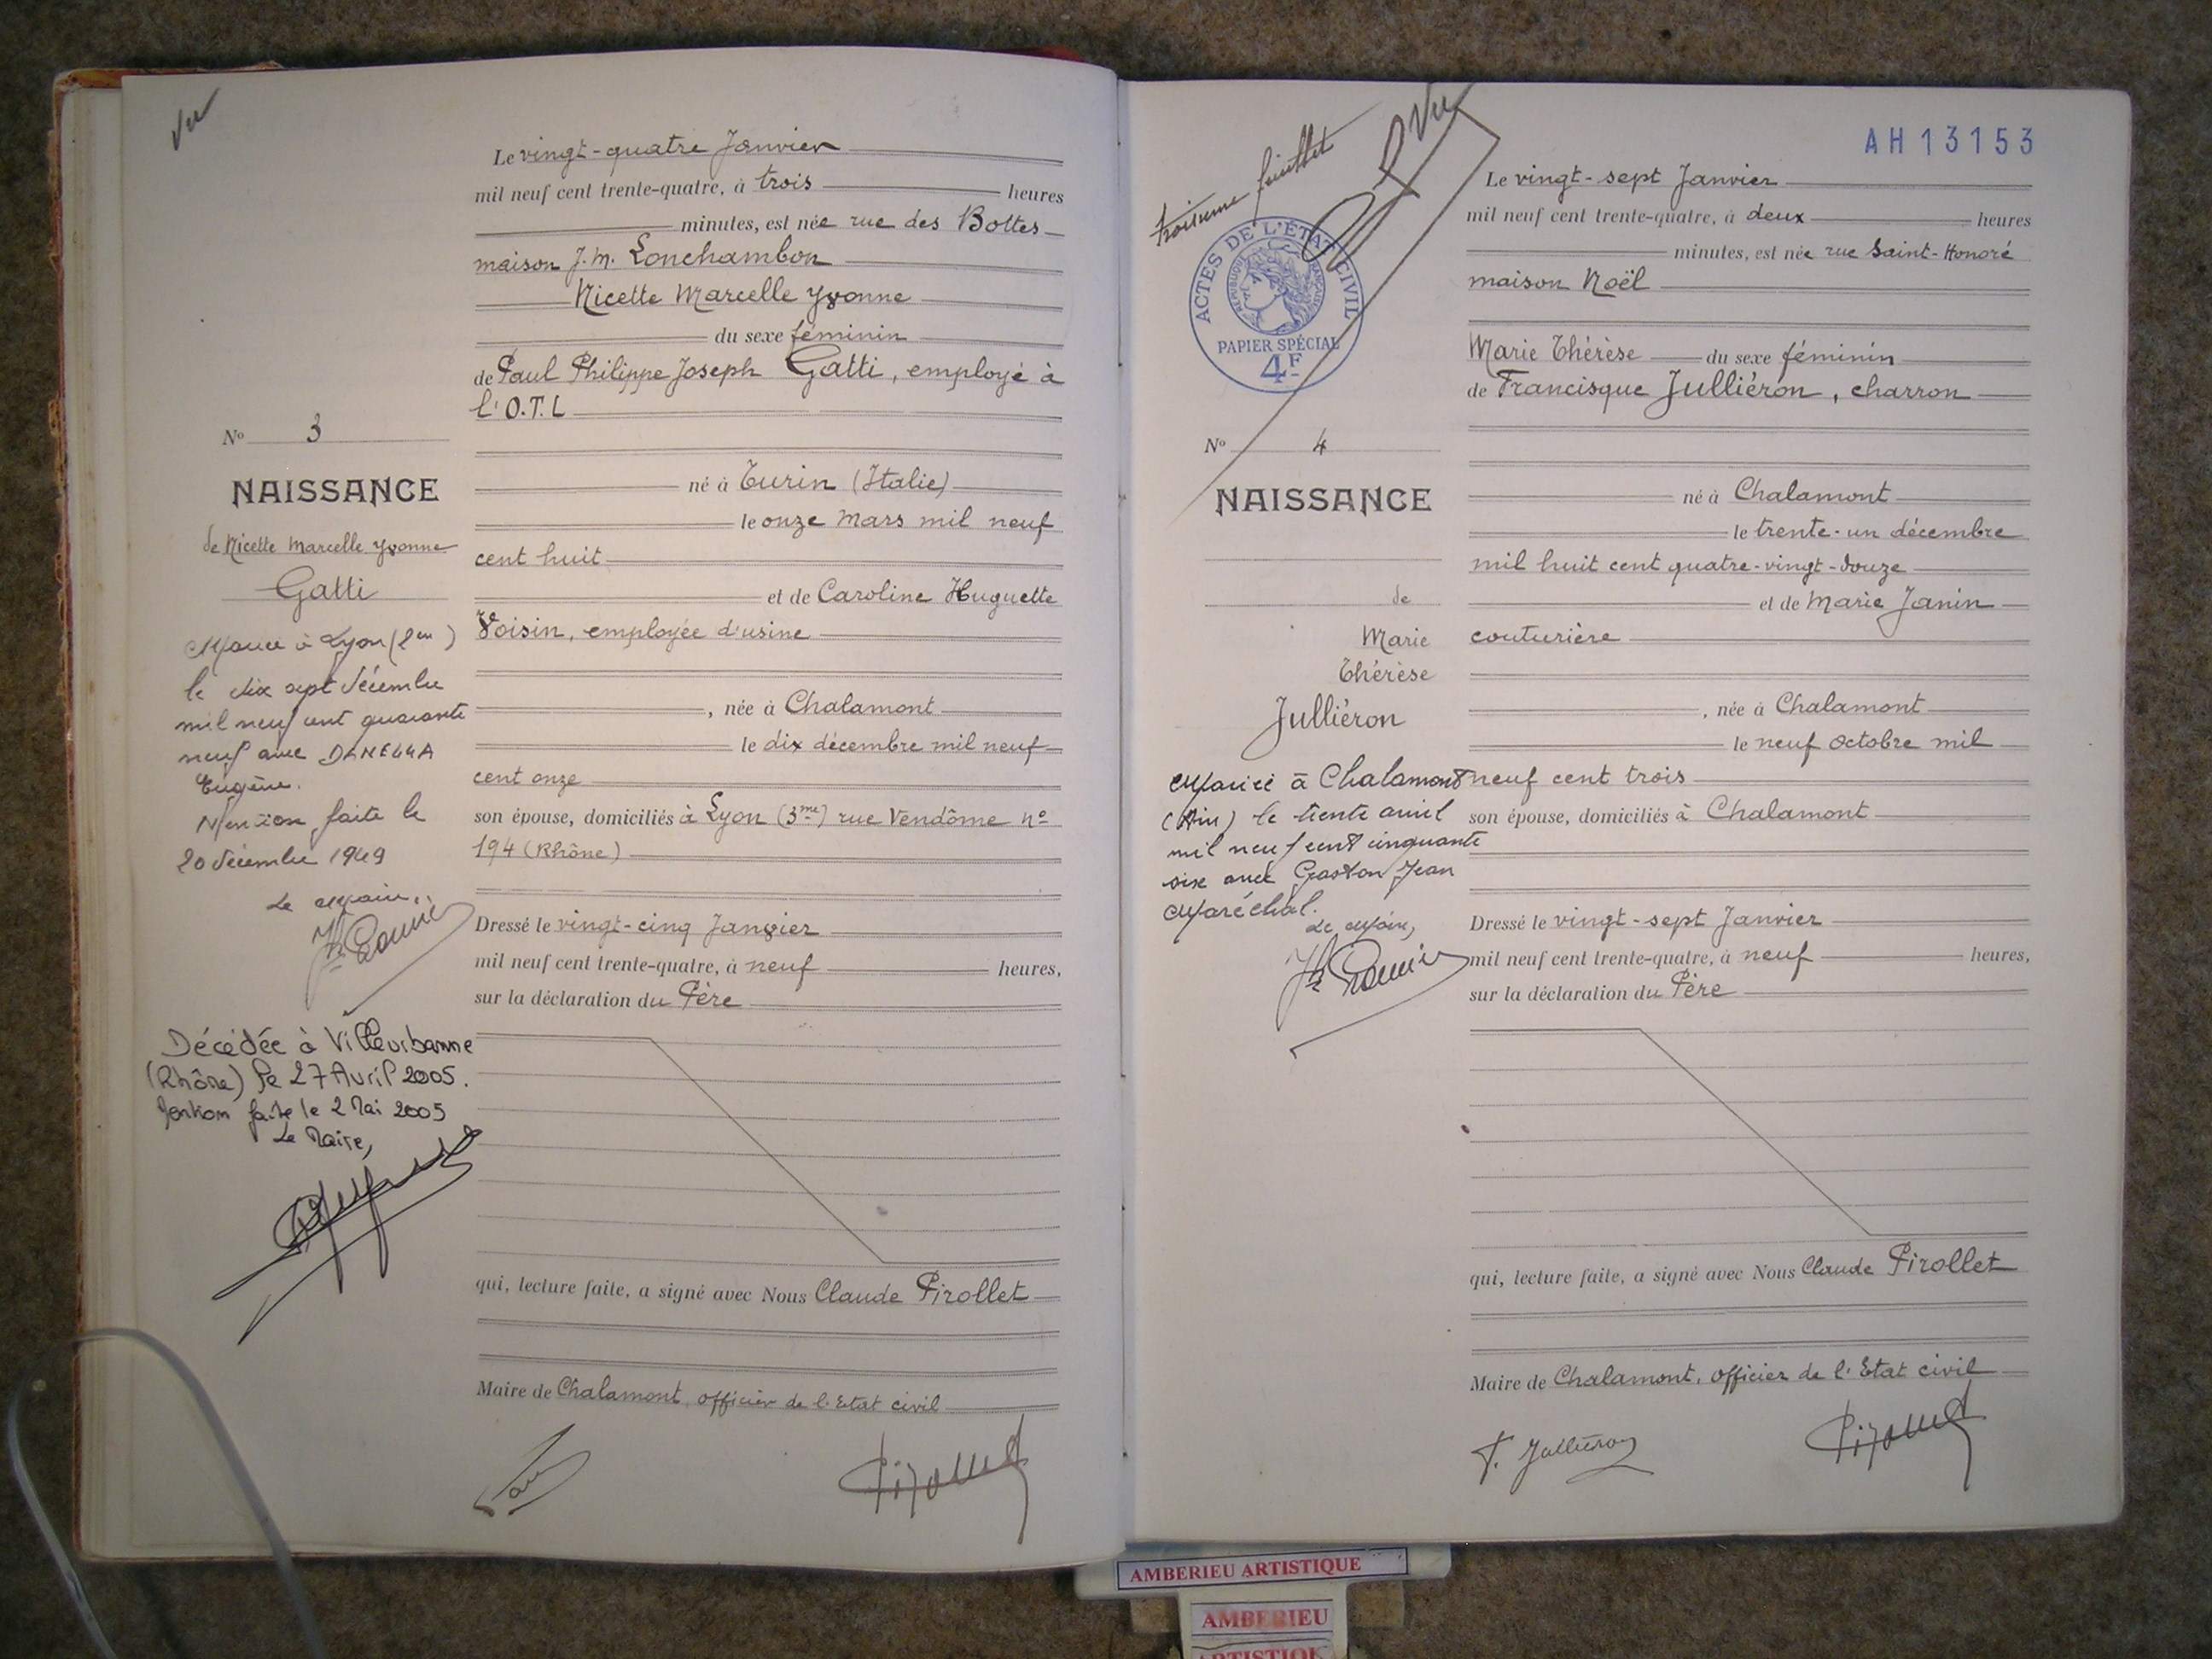 Vu
Le vingt-quatre Janvier
mil neuf cent trente-quatre, à trois heures
minutes, est née rue des Bottes
maison J. M. Lonchambon
Nicette Marcelle Yvonne
du sexe féminin
de Paul Philippe Joseph Gatti, employé à
l'O.T.L
né à Turin (Italie)
le onze Mars mil neuf
cent huit
et de Caroline Huguette
Voisin, employée d'usine
, née à Chalamont
le dix décembre mil neuf
cent onze
son épouse, domiciliés à Lyon (3me) rue Vendôme no
194 (Rhône)
Dressé le vingt-cinq Janvier
mil neuf cent trente-quatre, à neuf heures,
sur la déclaration du Père
qui, lecture faite, a signé avec Nous Claude Pirollet
Maire de Chalamont, officier de l'Etat civil
No 3
NAISSANCE
de Nicette Marcelle Yvonne
Gatti
Mariée à Lyon
le dix sept décembre
mil neuf cent quarante
neuf avec
Eugène.
Mention faite le
20 décembre 1949
Le Maire,
Décédée à Villeurbanne
(Rhône) le 27 Avril 2005.
Mention faite le 2 Mai 2005
Le Maire,
Pirollet
troisième feuillet
Vu
AH13153
ACTES DE L'ÉTAT CIVIL
RÉPUBLIQUE FRANÇAISE
PAPIER SPÉCIAL
4F
Le vingt-sept Janvier
mil neuf cent trente-quatre, à deux heures
minutes, est née rue Saint-Honoré
maison Noël
Marie Thérèse du sexe féminin
de Francisque Julliéron, charron
né à Chalamont
le trente-un décembre
mil huit cent quatre-vingt-douze
et de Marie Janin
couturière
, née à Chalamont
le neuf octobre mil
neuf cent trois
son épouse, domiciliés à Chalamont
Dressé le vingt-sept Janvier
mil neuf cent trente-quatre, à neuf heures,
sur la déclaration du Père
qui, lecture faite, a signé avec Nous Claude Pirollet
Maire de Chalamont, officier de l'Etat civil
No 4
NAISSANCE
de
Marie
Thérèse
Julliéron
Mariée à Chalamont
(Ain) le trente avril
mil neuf cent cinquante
six avec Gaston Jean
Maréchal.
Le Maire,
F. Julliéron
Pirollet
AMBERIEU ARTISTIQUE
AMBERIEU